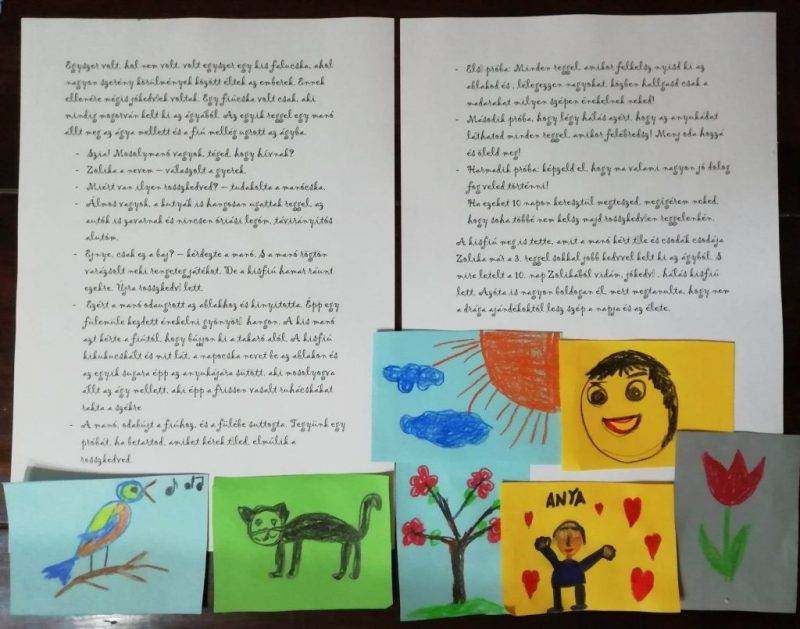 Egyszer volt, hol nem volt, volt egyszer egy kis falucska, ahol
nagyon szerény körülmények között éltek az emberek. Ennek
ellenére mégis jókedvűek voltak. Egy fiúcska volt csak, aki
mindig mogorván kelt ki az ágyából. Az egyik reggel egy manó
állt meg az ágya mellett és a fiú mellég ugrott az ágyba.
- Szia! Mosolymanó vagyok, téged, hogy hívnak?
- Zolika a nevem – válaszolt a gyerek.
- Miért van ilyen rosszkedved? – tudakolta a manócska.
- Álmos vagyok, a kutyák is hangosan ugattak reggel, az
autók is zavarnak és nincsen óriási legóm, távirányítós
autóm.
- Ejnye, csak ez a baj? – kérdezte a manó. S a manó rögtön
varázsolt neki rengeteg játékot. De a kisfiú hamar ráunt
ezekre. Újra rosszkedvű lett.
- Ezért a manó odaugrott az ablakhoz és kinyitotta. Épp egy
fülemüle kezdett énekelni gyönyörű hangon. A kis manó
azt kérte a fiútól, hogy bújjon ki a takaró alól. A kisfiú
kikukucskált és mit lát, a napocska nevet be az ablakon és
az egyik sugara épp az anyukájára sütött, aki mosolyogva
állt az ágy mellett, aki épp a frissen vasalt ruhácskákat
rakta a székre
- A manó, odabújt a fiúhoz, és a fülébe suttogta. Tegyünk egy
próbát, ha betartod, amiket kérek tőled, elmúlik a
rosszkedved.
- Első próba: Minden reggel, amikor felkelsz nyisd ki az
ablakod és , lélegezzen nagyokat, közben hallgasd csak a
madarakat milyen szépen énekelnek neked!
- Második próba, hogy légy hálás azért, hogy az anyukádat
láthatod minden reggel, amikor felébredsz! Menj oda hozzá
és öleld meg!
- Harmadik próba: képzeld el, hogy ma valami nagyon jó dolog
fog veled történni!
Ha ezeket 10 napon keresztül megteszed, megígérem neked,
hogy soha többé nem kelsz majd rosszkedvűen reggelenkén.
A kisfiú meg is tette, amit a manó kért tőle és csodák csodája
Zolika már a 3. reggel sokkal jobb kedvvel kelt ki az ágyból. S
mire letelt a 10. nap Zolikából vidám, jókedvű , hálás kisfiú
lett. Azóta is nagyon boldogan él, mert megtanulta, hogy nem
a drága ajándékoktól lesz szép a napja és az élete.
ANYA